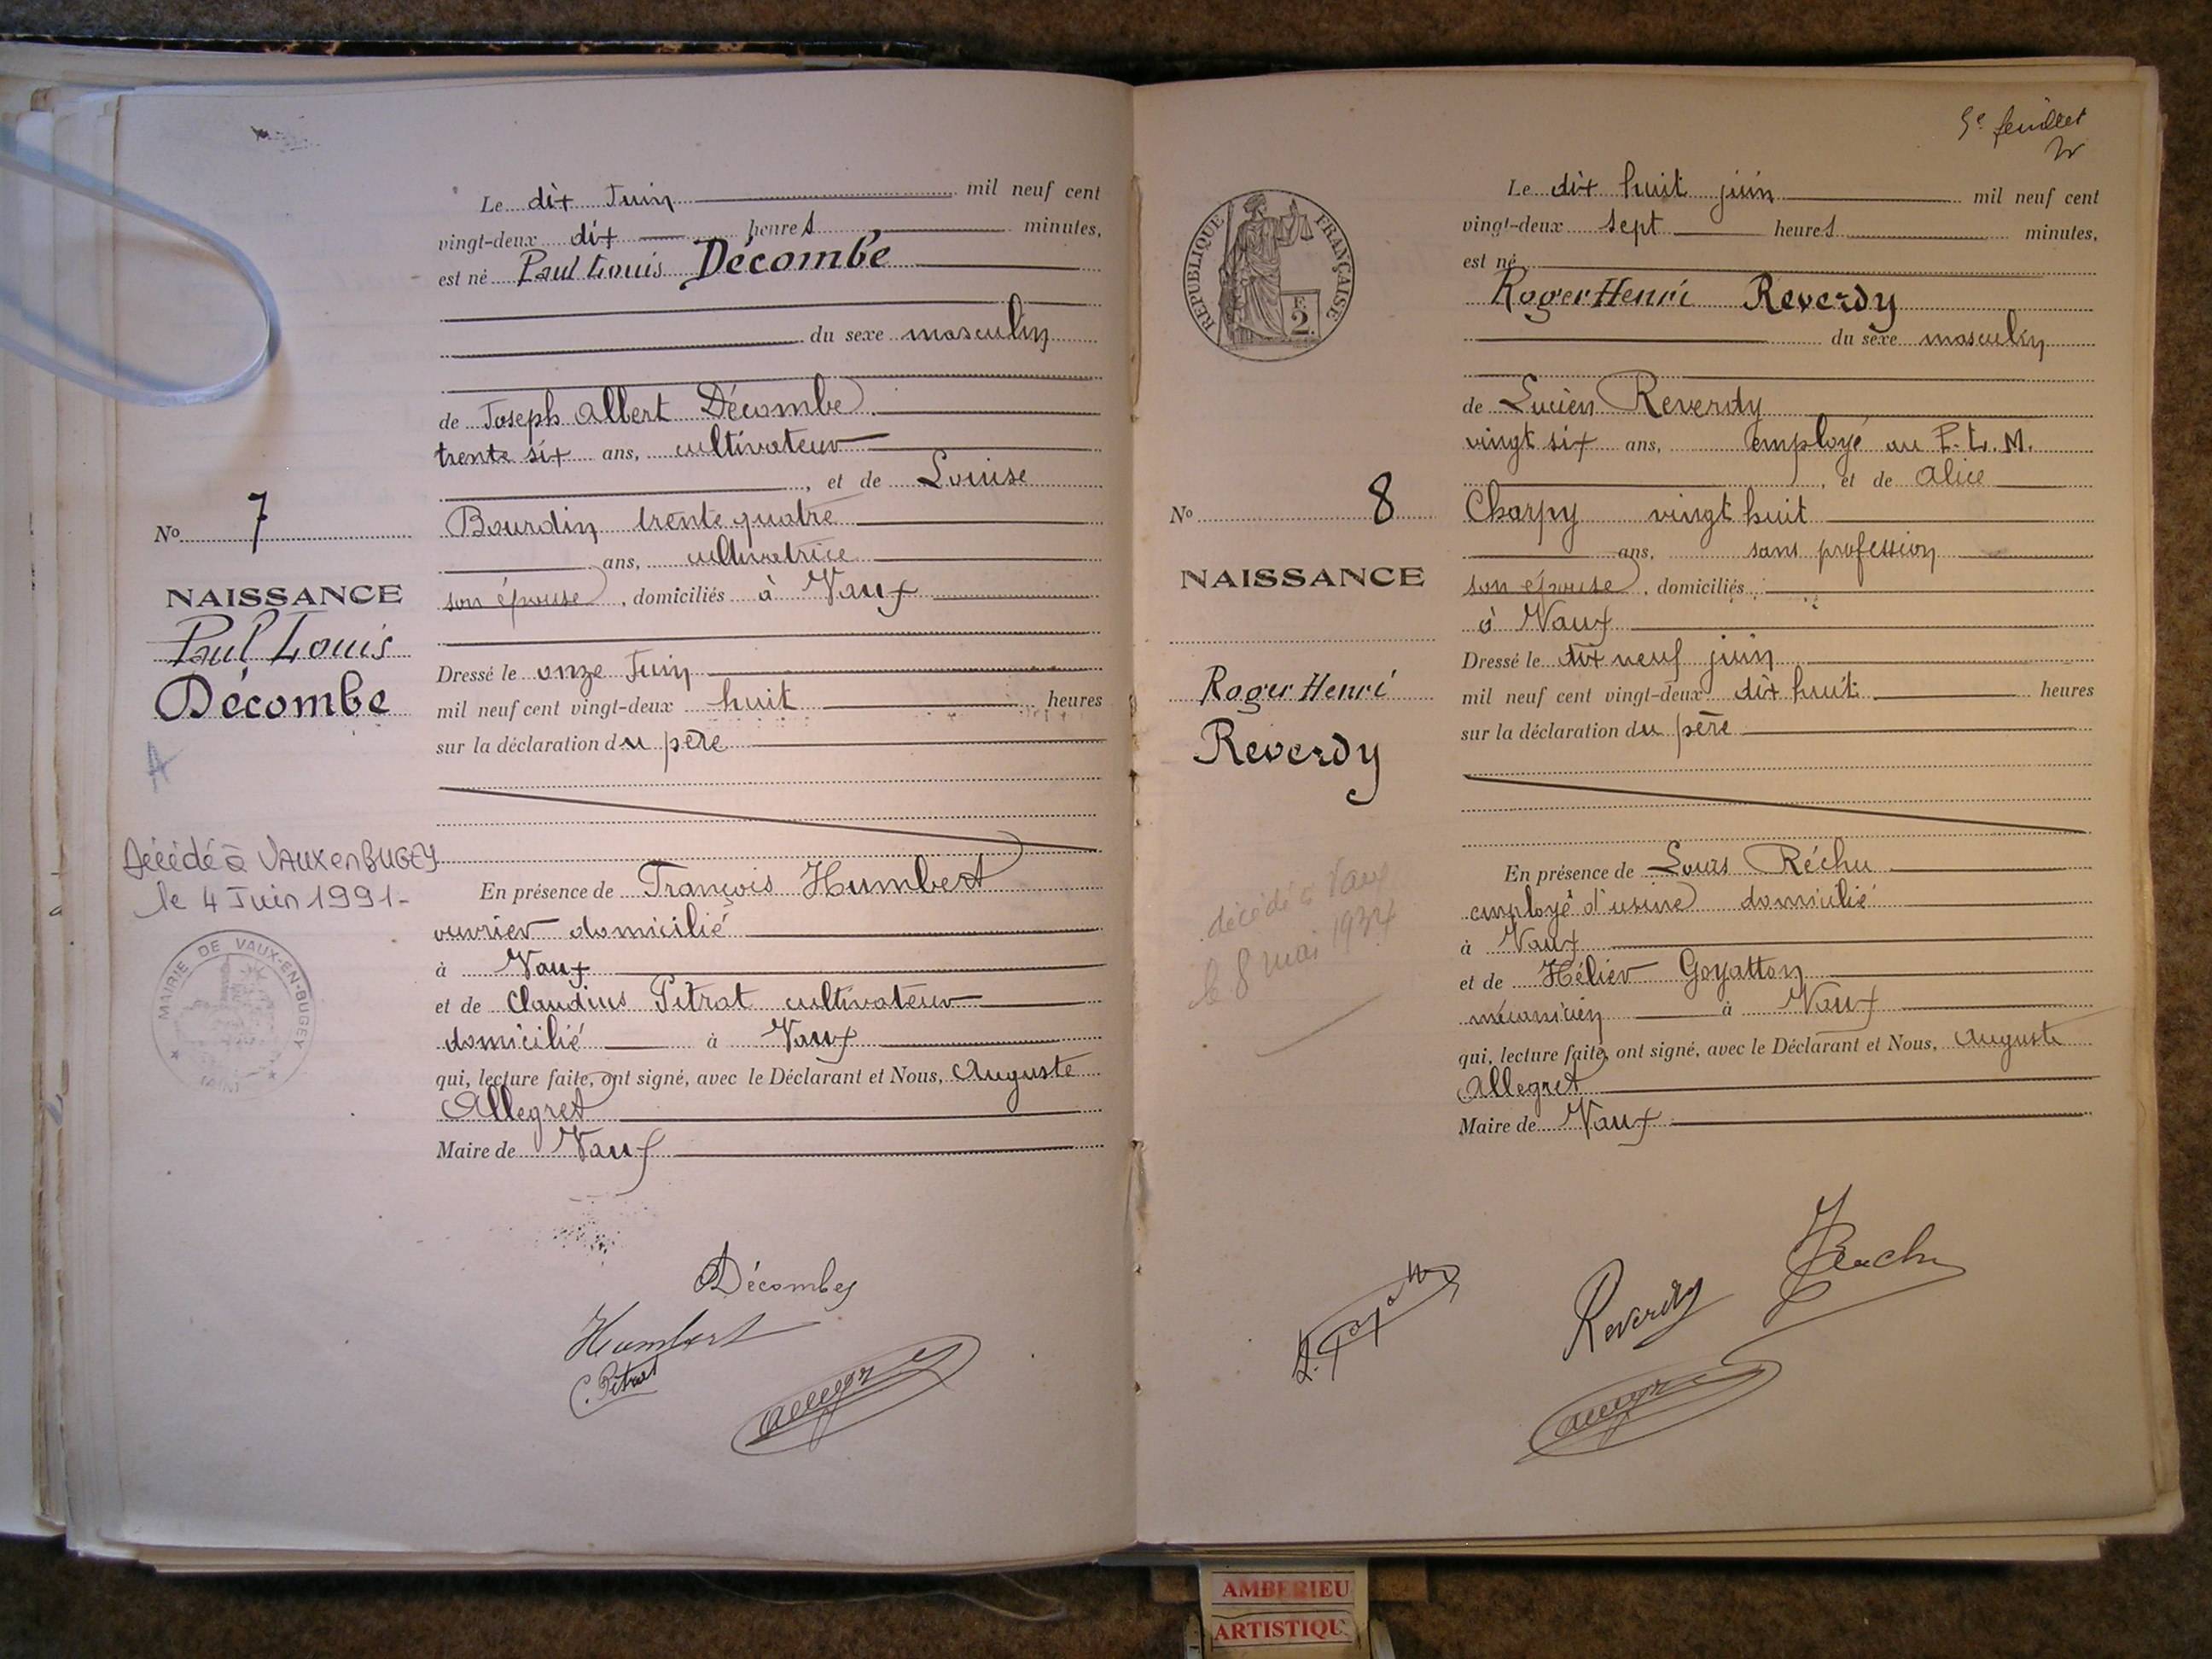 Le dix Juin mil neuf cent
vingt-deux dix heures minutes,
est né Paul Louis Décombe
du sexe masculin
de Joseph Albert Décombe
trente six ans, cultivateur
, et de Louise
Bourdin trente quatre
ans, cultivatrice
son épouse, domiciliés à Vaux
Dressé le onze Juin
mil neuf cent vingt-deux huit heures
sur la déclaration du père
En présence de François Humbert
ouvrier domicilié
à Vaux
et de Claudius Pitrat cultivateur
domicilié à Vaux
qui, lecture faite, ont signé, avec le Déclarant et Nous, Auguste
Allegret
Maire de Vaux
No 7
NAISSANCE
Paul Louis
Décombe
A
Décédé à VAUX en BUGEY
le 4 Juin 1991-
MAIRIE DE VAUX-EN-BUGEY
(AIN)
Décombes
Humbert
C. Pitrat
5e feuillet
RÉPUBLIQUE FRANÇAISE
F.
2.
Le dix huit juin mil neuf cent
vingt-deux sept heures minutes,
est né
Roger Henri Reverdy
du sexe masculin
de Lucien Reverdy
vingt six ans, employé au P.L.M.
, et de Alice
Charpy vingt huit
ans, sans profession
son épouse, domiciliés
à Vaux
Dressé le dix neuf juin
mil neuf cent vingt-deux dix huit heures
sur la déclaration du père
En présence de Louis Réchu
employé d'usine domicilié
à Vaux
et de Hélier Goyatton
mécanicien à Vaux
qui, lecture faite, ont signé, avec le Déclarant et Nous, Auguste
Allegret
Maire de Vaux
No 8
NAISSANCE
Roger Henri
Reverdy
décédé à Vaux
le 8 mai 1934
Reverdy
AMBERIEU
ARTISTIQU